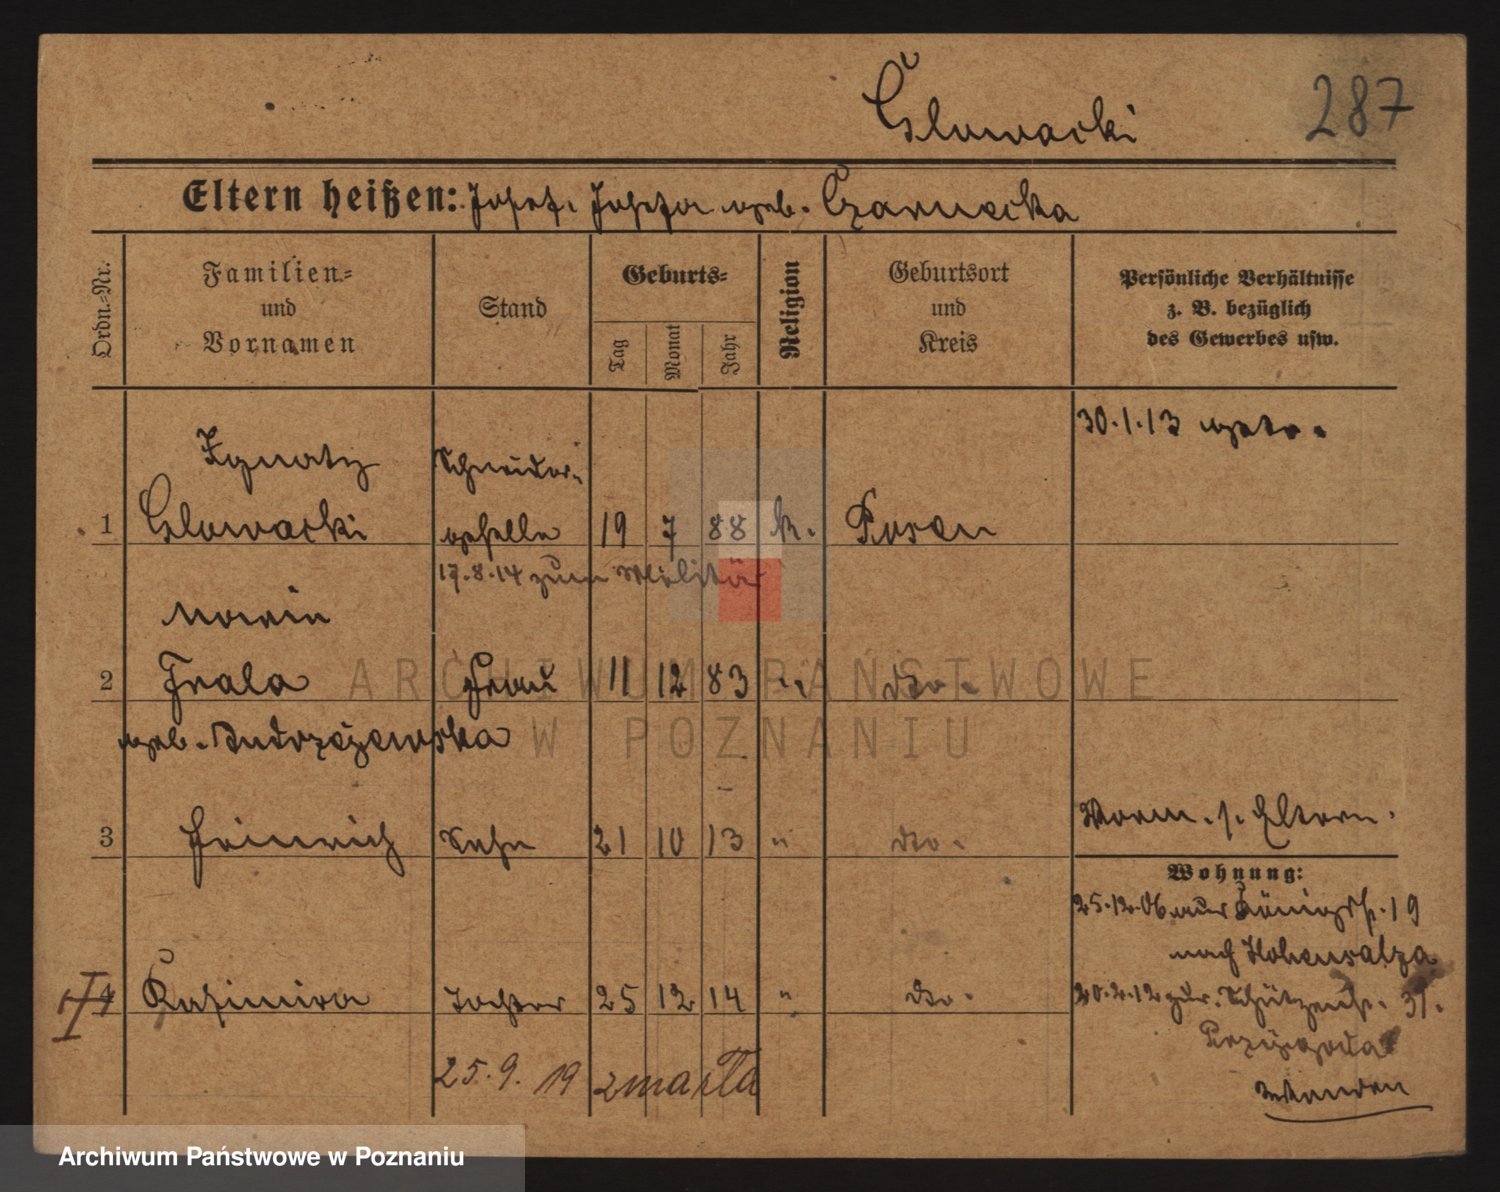 Głowacki
287
Eltern heißen: Josef. Josefa geb. Czarnecka
Ordn.-Nr.
Familien-
und
Vornamen
Stand
Geburts-
Tag
Monat
Jahr
Religion
Geburtsort
und
Kreis
Persönliche Verhältnisse
z. B. bezüglich
des Gewerbes usw.
30.1.13 getr.
Ignatz Schneider-
1 Głowacki geselle 19 7 88 k. Posen
17.8.14 zum Militär
Maria
2 Frau 11 12 83 " do.
geb.
3 Heinrich Sohn 21 10 13 " do.
Vorm. s. Eltern.
Wohnung:
25.12.06 aus Königstr. 19
nach Hohensalza
4 Kasimira Tochter 25 12 14 " do.
20.2.12 zur. Schützenstr. 31.
Przygoda
25.9.19 zmarła
ARCHIWUM PAŃSTWOWE
W POZNANIU
Archiwum Państwowe w Poznaniu